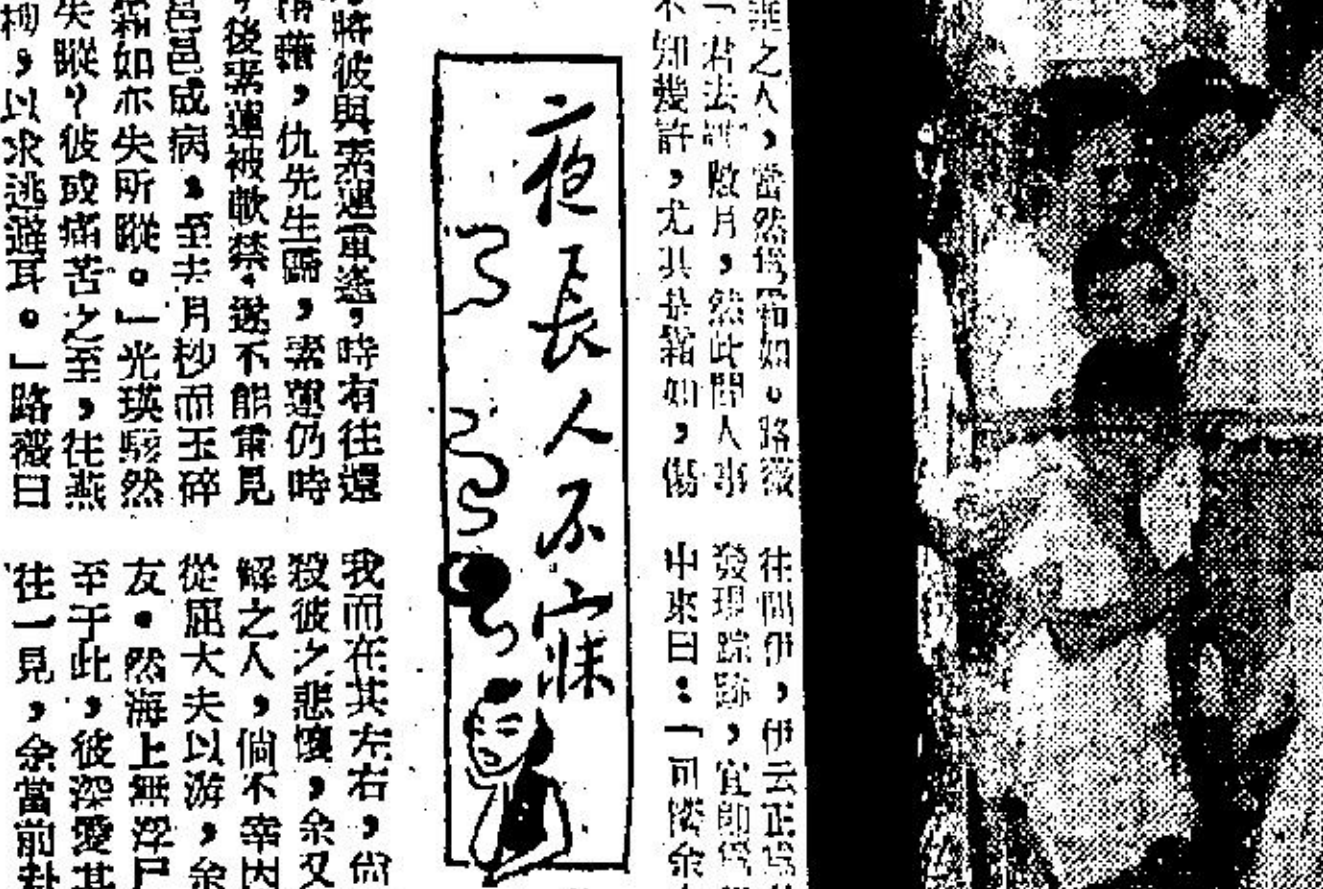 之人，當然為霜如。路薇
「君去數月，然此間人事
不知幾許，尤其是霜如，傷
往問伊，伊云正為
發現踪跡，宜即為
中來曰：「何余
夜長人不寐
將彼與素蓮重逢，時有往還
藉，仇先生歸，素蓮仍時
，後素蓮被軟禁，遂不能常見
邑邑成病，至去月杪而玉碎
霜如亦失所蹤。」光瑛駭然
失蹤？彼或痛苦之至，往燕
，以求逃避耳。」路薇曰
我而在其左右，尚
殺彼之悲懷，余又
解之人，倘不幸因
從屈大夫以游，余
友。然海上無浮尸
至于此，彼深愛其
往一見，余當前赴